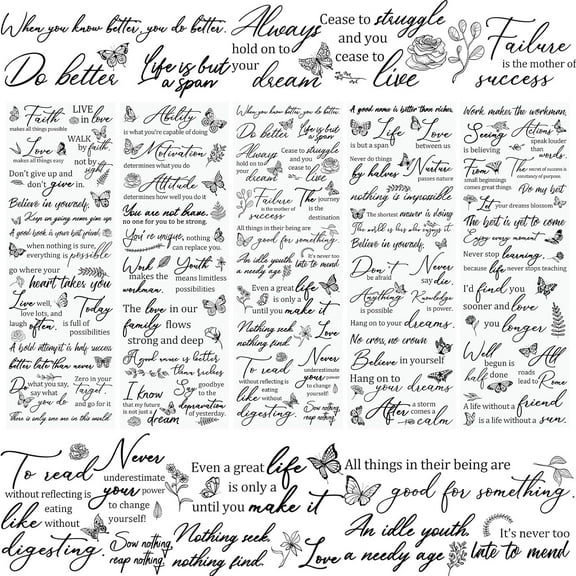 When you know better, you do better.
Do better
Life is but
a span
Always
hold on to
your dream
Cease to struggle
and you
cease to
live
Failure
is the mother of
success
Faith
makes all things possible
LIVE
in love
Love
makes all things easy
WALK
by faith,
not by
sight
Don't give up and
don't give in.
Believe in yourself.
Keep on going never give up
A good book is your best friend.
when nothing is sure,
everything is possible
go where your
heart takes you
Live well,
love lots, and
laugh often.
Today
is full of
possibilities
A bold attempt is half success
better late than never
Do what you
say, say what
you do
Zero in your
target,
and go for it
There is only one me in this world
Ability
is what you're capable of doing
Motivation
determines what you do
Attitude
determines how well you do it
You are not alone.
no one for you to be strong.
You're unique, nothing
can replace you.
Work
makes the
workman.
Youth
means limitless
possibilities
The love in our
family flows
strong and deep
A good name is better
than riches
I know
that my future
is not just a
dream
Say goodbye
to the
depravation
of yesterday.
When you know better, you do better.
Do better
Life is but
a span
Always
hold on to
your dream
Cease to struggle
and you
cease to
live
Failure
is the mother of
success
The journey
is the
destination
All things in their being are
good for something.
An idle youth
a needy age
It's never too
late to mend
Even a great life
is only a
until you make it
Nothing seek,
nothing find.
Love
To read
without reflecting is
like eating
without
digesting.
Never
underestimate
your power
to change
yourself!
Sow nothing,
reap nothing.
A good name is better than riches.
Life
is but a span
Love
between us
Never do things
by halves
Nurture
passes nature
nothing is impossible
The shortest never is doing
The world is his who enjoys it
Believe in yourself.
Don't
be afraid
Never
say
die.
Anything
is possible
Knowledge
is power.
Hang on to your dreams.
No cross, no crown
Believe in yourself
Hang on to
your dreams
After a storm
comes a
calm
Work makes the workman.
Seeing
is
believing
Actions
speak louder
than
words.
From small
beginnings
comes great things.
The secret of success is
constancy of purpose.
Do my best
Let your dreams blossom
The best is yet to come
Enjoy every moment
Never stop learning,
because life never stops teaching
I'd find you
sooner and love
you longer
Well
begun is
half
done
All
roads
lead to
Rome
A life without a friend
is a life without a sun.
To read
without reflecting is
like eating
without
digesting.
Never
underestimate
your power
to change
yourself!
Sow nothing,
reap nothing.
Even a great life
is only a
until you make it
Nothing seek,
nothing find.
All things in their being are
good for something.
An idle youth,
Love a needy age
It's never too
late to mend